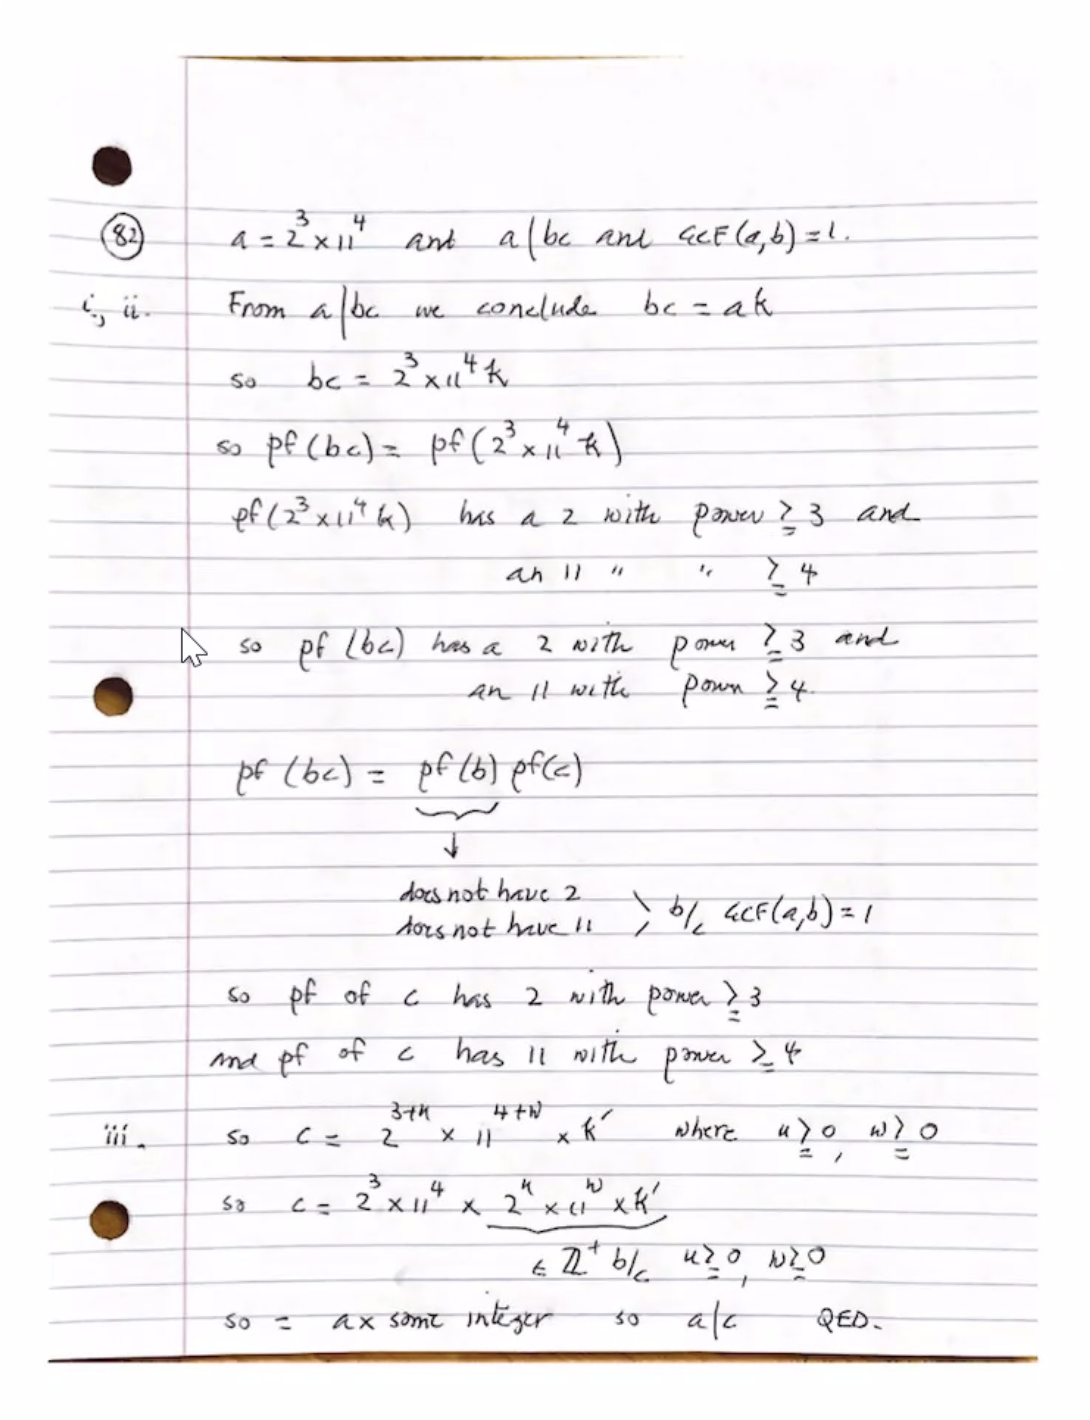 82 a = 2³ × 11⁴ and a | bc and GCF(a,b) = 1.
i., ii. From a | bc we conclude bc = ak
so bc = 2³ × 11⁴ k
so pf(bc) = pf(2³ × 11⁴ k)
pf(2³ × 11⁴ k) has a 2 with power ≥ 3 and
an 11 " " ≥ 4
so pf(bc) has a 2 with power ≥ 3 and
an 11 with power ≥ 4.
pf(bc) = pf(b) pf(c)
↓
does not have 2
does not have 11 > b/c GCF(a,b) = 1
so pf of c has 2 with power ≥ 3
and pf of c has 11 with power ≥ 4
iii. so c = 2³⁺ᵘ × 11⁴⁺ʷ × k' where u ≥ 0, w ≥ 0
so c = 2³ × 11⁴ × 2ᵘ × 11ʷ × k'
∈ ℤ⁺ b/c u ≥ 0, w ≥ 0
so = a x some integer so a | c QED.